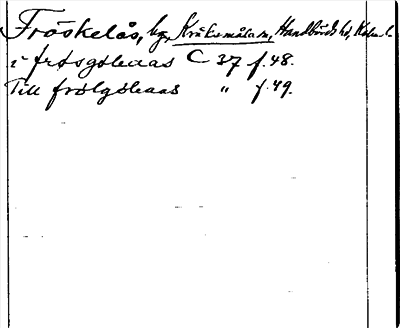 Fröskelås, by, Kråksmåla sn, Handbörds hd, Kalm. l.
i frøsgøleaas C 37 f. 48.
Till frølgøleaas " f. 49.